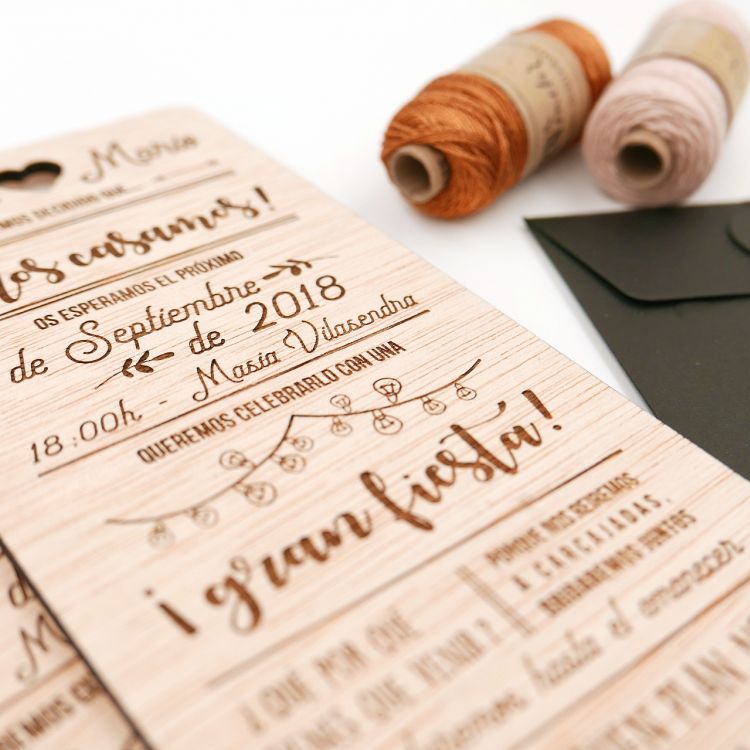 Mario
MOS DECIDIDO QUE...
Nos casamos!
OS ESPERAMOS EL PRÓXIMO
de Septiembre
de 2018
18:00h - Masia Vilasendra
QUEREMOS CELEBRARLO CON UNA
¡gran fiesta!
PORQUE NOS REIREMOS
A CARCAJADAS,
BRINDAREMOS JUNTOS
hasta el amanecer
¿QUE POR QUÉ
QUE VENIR?
PLAN